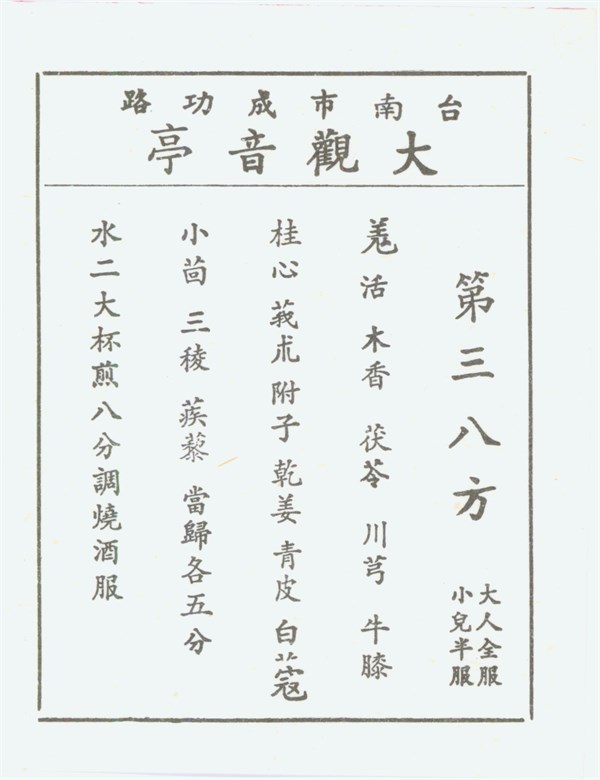 台南市成功路
大觀音亭
第三八方
大人全服
小兒半服
羗活 木香 茯苓 川芎 牛膝
桂心 莪朮 附子 乾姜 青皮 白蔻
小茴 三稜 蒺藜 當歸各五分
水二大杯煎八分調燒酒服